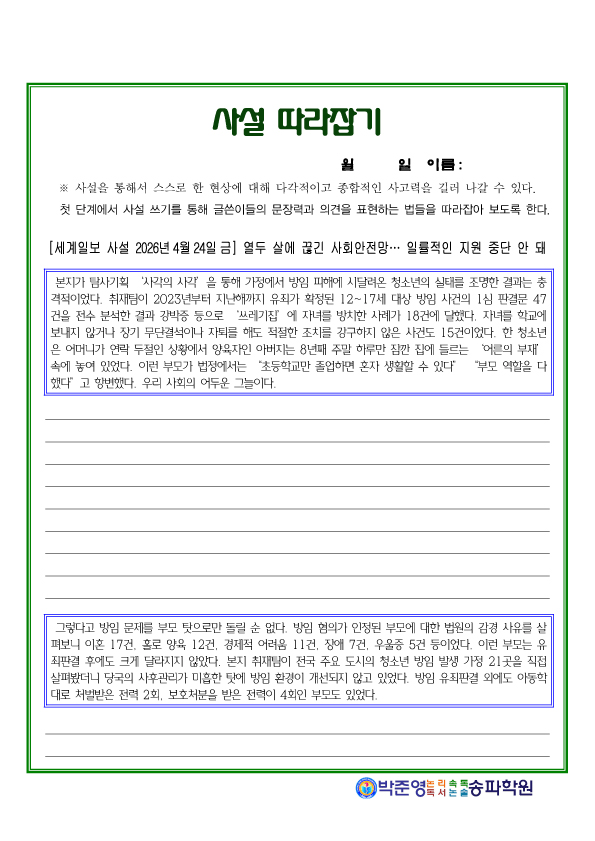 사설 따라잡기
월 일 이름:
※ 사설을 통해서 스스로 한 현상에 대해 다각적이고 종합적인 사고력을 길러 나갈 수 있다.
첫 단계에서 사설 쓰기를 통해 글쓴이들의 문장력과 의견을 표현하는 법들을 따라잡아 보도록 한다.
[세계일보 사설 2026년 4월 24일 금] 열두 살에 끊긴 사회안전망… 일률적인 지원 중단 안 돼
본지가 탐사기획 ‘사각의 사각’을 통해 가정에서 방임 피해에 시달려온 청소년의 실태를 조명한 결과는 충
격적이었다. 취재팀이 2023년부터 지난해까지 유죄가 확정된 12~17세 대상 방임 사건의 1심 판결문 47
건을 전수 분석한 결과 강박증 등으로 ‘쓰레기집’에 자녀를 방치한 사례가 18건에 달했다. 자녀를 학교에
보내지 않거나 장기 무단결석이나 자퇴를 해도 적절한 조치를 강구하지 않은 사건도 15건이었다. 한 청소년
은 어머니가 연락 두절인 상황에서 양육자인 아버지는 8년째 주말 하루만 잠깐 집에 들르는 ‘어른의 부재’
속에 놓여 있었다. 이런 부모가 법정에서는 “초등학교만 졸업하면 혼자 생활할 수 있다” “부모 역할을 다
했다”고 항변했다. 우리 사회의 어두운 그늘이다.
그렇다고 방임 문제를 부모 탓으로만 돌릴 순 없다. 방임 혐의가 인정된 부모에 대한 법원의 감경 사유를 살
펴보니 이혼 17건, 홀로 양육 12건, 경제적 어려움 11건, 장애 7건, 우울증 5건 등이었다. 이런 부모는 유
죄판결 후에도 크게 달라지지 않았다. 본지 취재팀이 전국 주요 도시의 청소년 방임 발생 가정 21곳을 직접
살펴봤더니 당국의 사후관리가 미흡한 탓에 방임 환경이 개선되지 않고 있었다. 방임 유죄판결 외에도 아동학
대로 처벌받은 전력 2회, 보호처분을 받은 전력이 4회인 부모도 있었다.
박준영논리속독독서논술송파학원